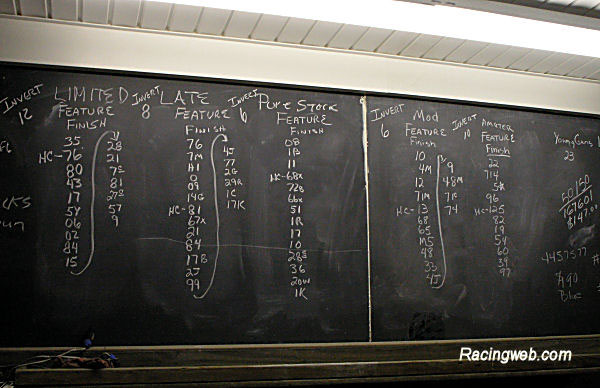 INVERT
12
LIMITED
FEATURE
FINISH
35
HC-76
80
43
17
5Y
06
02
84
15
28
21
7S
81
27S
57
9
INVERT
8
LATE
FEATURE
FINISH
76
7M
A1
0
09
14G
HC-81
67X
21
84
17B
2J
99
4J
77
2G
29R
1C
17K
INVERT
6
PURE STOCK
FEATURE
FINISH
08
1B
11
HC-68X
72B
66X
51
1R
17
10
28S
36
20W
1K
INVERT
6
MOD
FEATURE
FINISH
10
4M
12
71M
HC-13
68
65
M5
48
33
4J
9
48M
7K
74
INVERT
10
FEATURE
Finish
22
714
96
HC-125
82
19
54
60
39
97
Young Guns
23
50/50
$147.00
4457577
#90
Blue
Racingweb.com